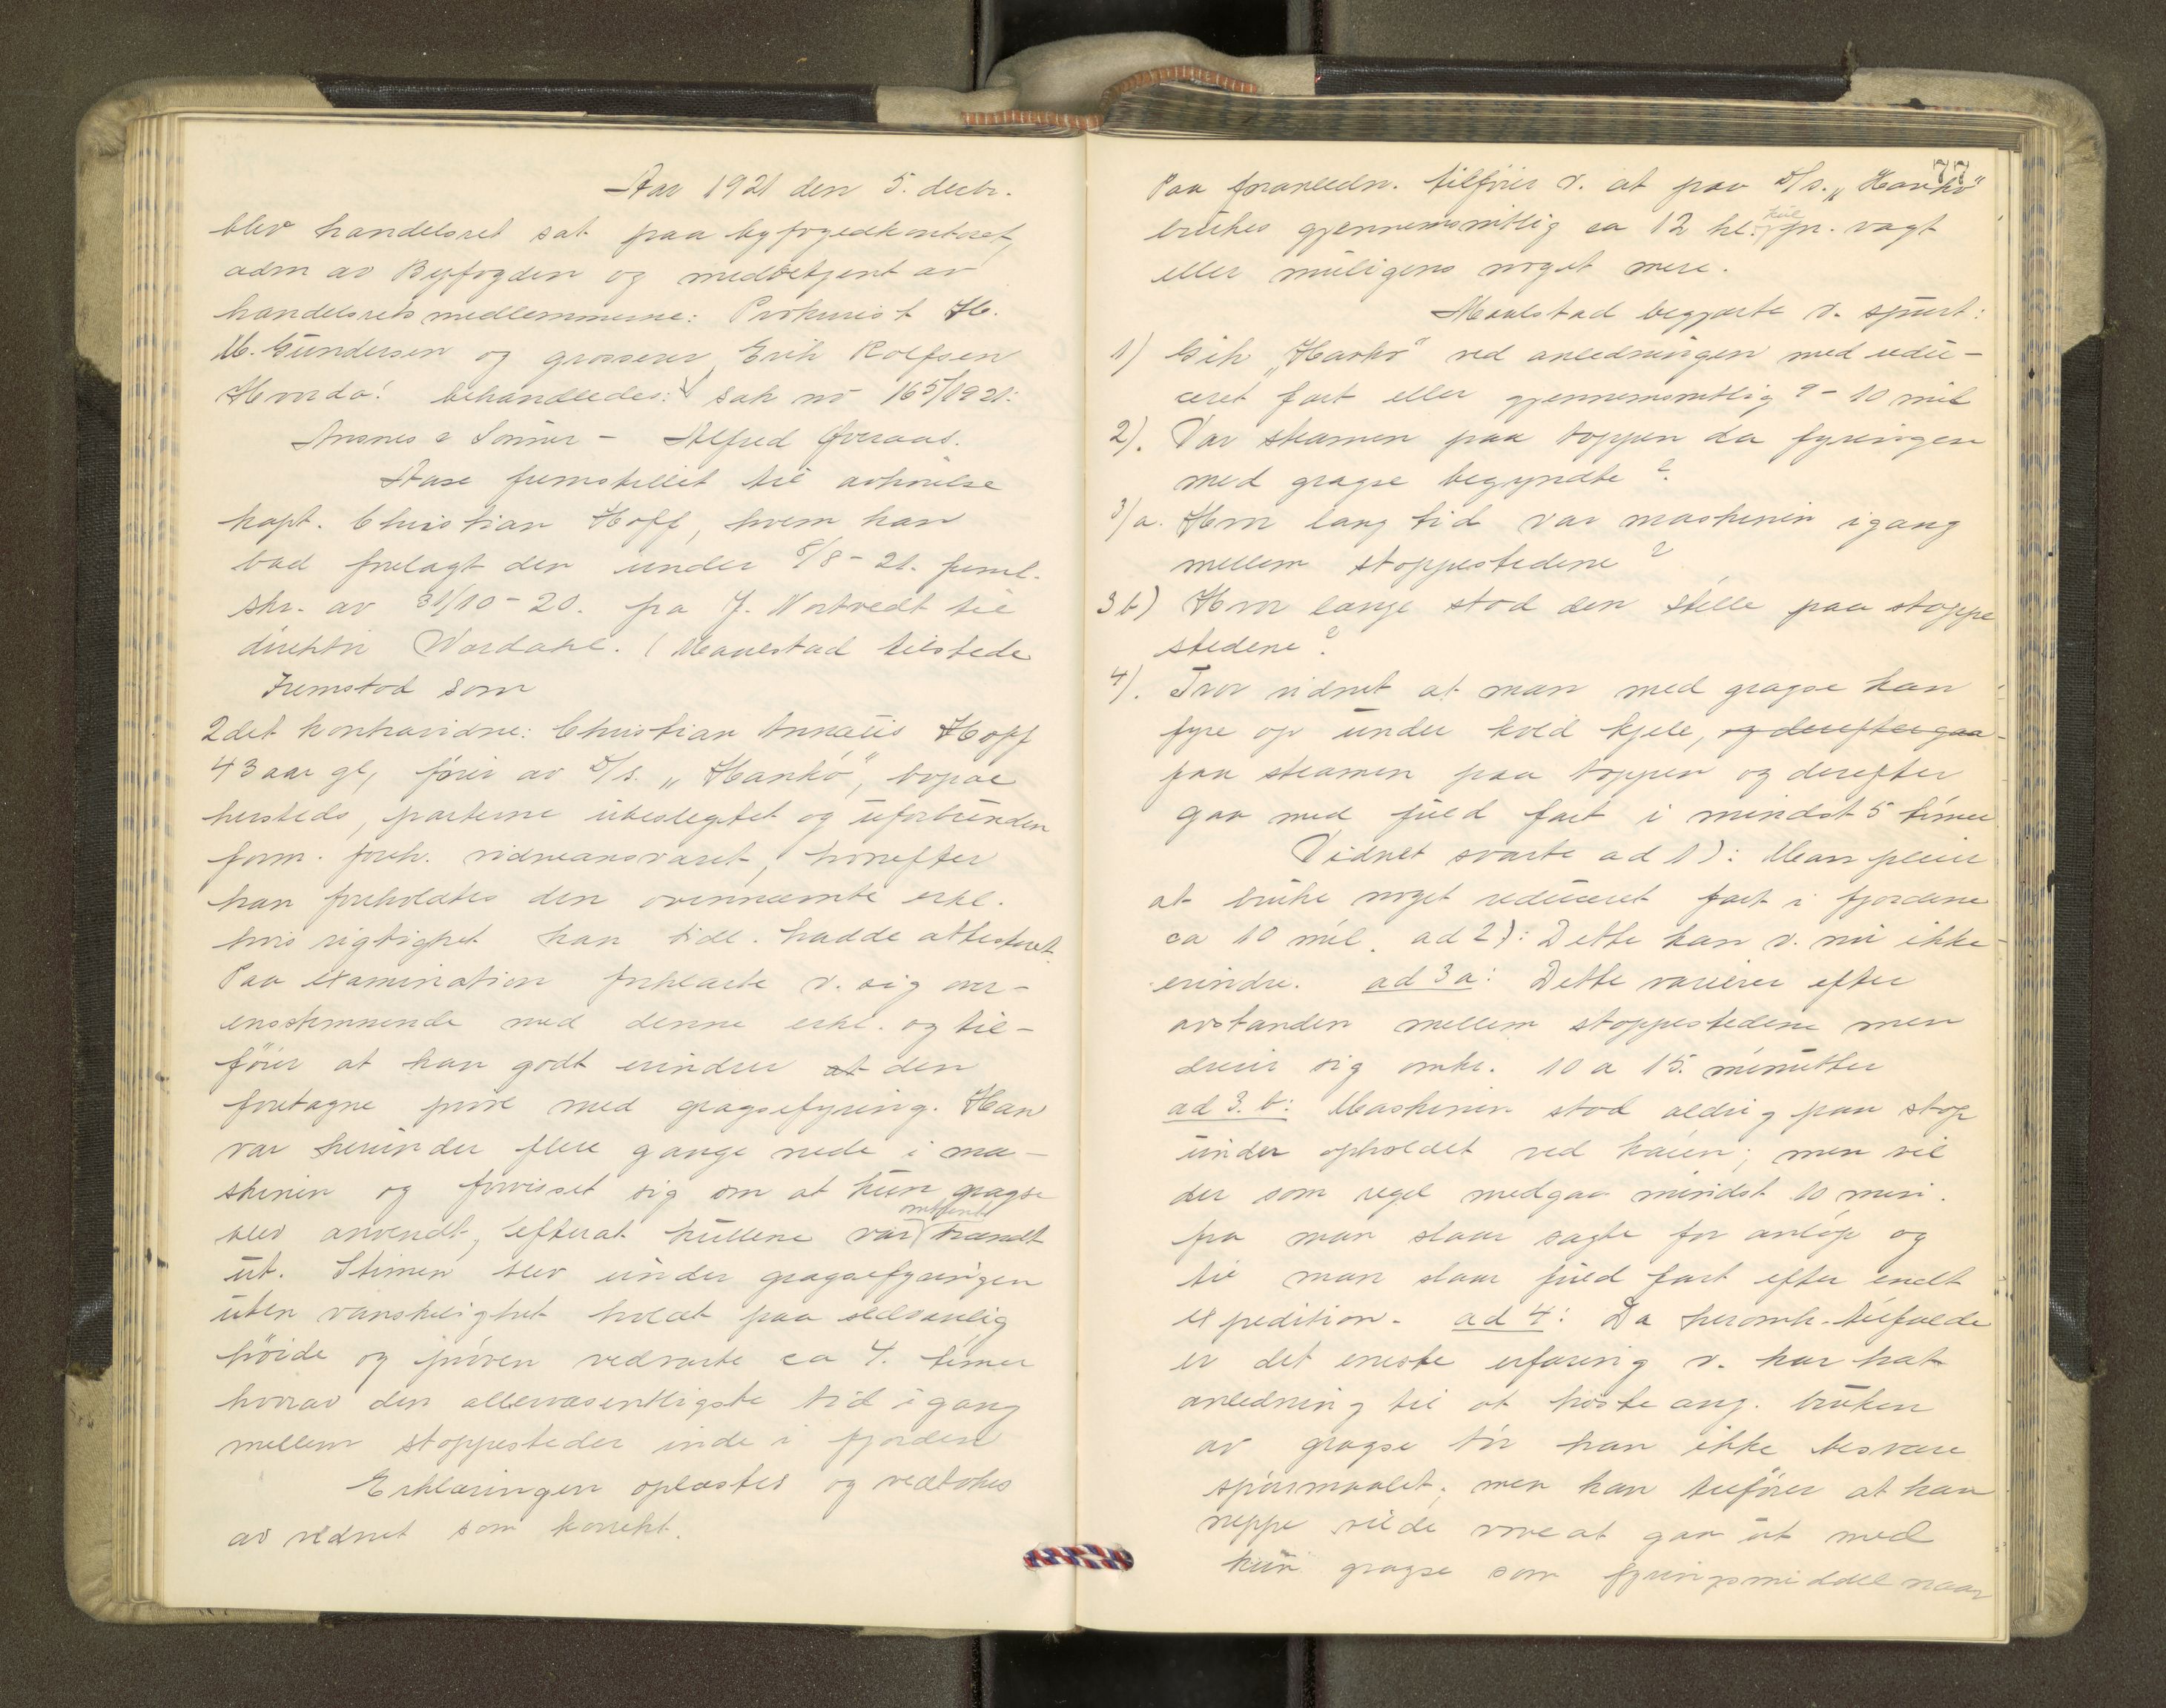 Aar 1921 den 5. decbr.
blev handelsret sat paa byfogedkontoret,
adm av Byfogden og medbetjent av
handelsretsmedlemmerne: Prokurist H.
M. Gundersen og grosserer Erik Rolfsen
Hvorda! behandledes: sak no 165/1921:
Ansnes & Sönner - Alfred Överaas.
Aase fremstillet til avhörelse
kapt. Christian Hoff, hvem han
bad forelagt den under 8/8-21. freml.
skr. av 30/10-20. fra J. Nortvedt til
direktör Wardahl. (Maulstad tilstede
Fremstod som
2det kontravidne: Christian Annæus Hoff
43 aar gl, förer av D/s. „Hankö", bopæl
hersteds, parterne ubeslegtet og uforbunden
form. forh. vidneansvaret, hvorefter
han foreholdtes den ovennævnte erkl.
hvis rigtighet han tidl. hadde attesteret.
Paa examination forklarte v. sig over-
ensstemmende med denne erkl. og til-
föier at han godt erindrer at den
foretagne pröve med gragsefyring. Han
var herunder flere gange nede i ma-
skinen og forvisset sig om at kun gragse
omtrent
blev anvendt, efterat kullene var brændt
ut. Stimen blev under gragsefyringen
uten vanskelighet holdt paa sedvanlig
höide og pröven vedvarte ca 4. timer
hvorav den allervæsentligste tid igang
mellem stoppesteder inde i fjorden
Erklæringen oplæstes og vedtokes
av vidnet som korrekt.
77
Paa foranledn. tilföier v. at paa D/s. „Hankö"
kul
brukes gjennemsnitlig ca 12 hl. pr. vagt
eller muligens noget mere.
Maulstad begjærte v. spurt:
1) Gik „Hankö" ved anledningen med redu-
ceret fart eller gjennemsnitlig 9-10 mil
2). Var steamen paa toppen da fyringen
med gragse begyndte?
3/a. Hvor lang tid var maskinen igang
mellem stoppestedene?
3b) Hvor længe stod den stille paa stoppe
stedene?
4). Tror vidnet at man med gragse kan
fyre op under kold kjele, og derefter gaa
faa steamen paa toppen og derefter
gaa med fuld fart i mindst 5 timer
Vidnet svarte ad 1): Man pleier
at bruke noget reduceret fart i fjordene
ca 10 mil. ad 2): Dette kan v. nu ikke
erindre. ad 3a: Dette varierer efter
avstanden mellem stoppestedene men
dreier sig omkr. 10 a 15. minutter
ad 3. b: Maskinen stod aldrig paa stop
under opholdet ved kaien; men vil
der som regel medgaa mindst 10 min.
fra man slaar sagte for anlöp og
til man slaar fuld fart efter endt
expedition. ad 4: Da heromh. tilfælde
er det eneste erfaring v. har hat
anledning til at höste ang. bruken
av gragse tör han ikke besvare
spörsmaalet; men han tilföier at han
neppe vilde vove at gaa ut med
kun gragse som fyringsmiddel naar